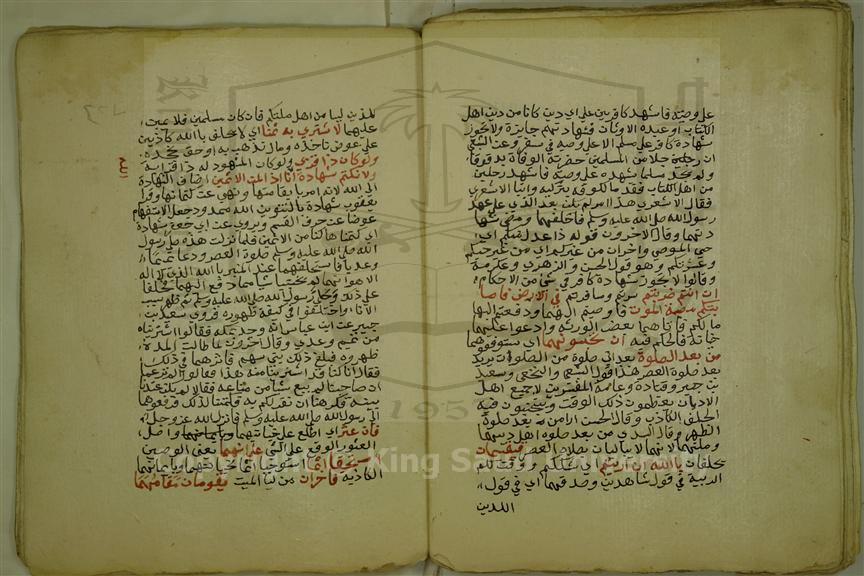 على وصية فاشهد كافرين على اي دين كانا من دين اهل
الكتاب او عبدة الاوثان فشهادتهم جايزة ولا يجوز
شهادة كافر على مسلم الا على وصية في سفر وعن الشعبي
ان رجلا من المسلمين حضرته الوفاة بدقوقا
ولم يجد مسلما يشهده على وصيته فاشهد رجلين
من اهل الكتاب فقدما الكوفة بتركته واتيا الاشعري
فقال الاشعري هذا امر لم يكن بعد الذي على عهد
رسول الله صلى الله عليه وسلم فاحلفهما وامضى شها
دتهما وقال الاخرون قوله ذوا عدل منكم اي
حي الموصي واخران من غيركم اي من غير حيكم
وعشيرتكم وهو قول الحسن والزهري وعكرمة
وقالوا لا يجوز شهادة كافر في شي من الاحكام
ان انتم ضربتم سرتم وسافرتم في الارض فاصا
بتكم مصيبة الموت فاوصيتم اليهما ودفعتم اليها
مالكم فاتهماهما بعض الورثة وادعوا عليهما
خيانة فالحكم فيه ان تحبسونهما اي تستوقفوهما
من بعد الصلوة بعد اي صلوة من الصلوات يريد
بعد صلوة العصر هذا قول الشعبي والنخعي وسعيد
بن جبير وقتادة وعامة المفسرين لان جميع اهل
الاديان يعظمون ذلك الوقت ويجتنبون فيه
الحلف الكاذب وقال الحسن اراد من بعد صلوة
الظهر وقال السدي من بعد صلوة اهل دينهما
وملتهما لانهما لا يباليان بصلاة العصر فيقسمان
يحلفان بالله ان ارتبتم
الريبة في قول شاهدين وصدقهما اي في قول
اللذين
اللذين ليسا من اهل ملتكم فان كان مسلمين فلا يمين
عليهما لا نشتري به ثمنا اي لا نحلف بالله كاذبين
على عوض ناخذه ومال نذهب به او حق نجحده
ولو كان ذا قربى ولو كان المشهود له ذا قرابة
ولا نكتم شهادة الله انا اذا لمن الاثمين اضاف الشهادة
الى الله لانه امر باقامتها ونهى عن كتمانها وقرا
يعقوب شهادة بالتنوين الله ممدود وجعل الاستفهام
عوضا عن حرف القسم ويروى عن ابي جعفر شهادة
اي كتمناها كنا من الاثمين فلما نزلت هذه صلى رسول
الله صلى الله عليه وسلم صلوة العصر ودعا تميما
وعديا فاستحلفهما عند المنبر بالله الذي لا اله
الا هو انهما لم يختانا شيا مما دفع اليهما فحلفا
على ذلك وخلى رسول الله صلى الله عليه وسلم ثم ظهر
الاناء واختلفوا في كيفية ظهوره فروى سعيد بن
جبير عن ابن عباس انه وجد بمكة فقالوا اشتريناه
من تميم وعدي وقال اخرون لما طالت المدة
ظهروه فبلغ ذلك بني سهم فاتوهما في ذلك
فقالا انا كنا قد اشترينا منه هذا فقالوا الم تزعما
ان صاحبنا لم يبع شيا من متاعه فقالا لم يكن عندنا
بينة فكرهنا ان نقر لكم به فكتمنا لذلك فرفعوهما
الى رسول الله صلى الله عليه وسلم فانزل الله عز وجل
فان عثر اي اطلع على خيانتهما واصل
العثور الوقوع على الشي على انهما يعني الوصيين
استحقا اثما بخيانتهما وبايمانهما
الكاذبة فاخران من اوليا الميت يقومان مقامهما
الله